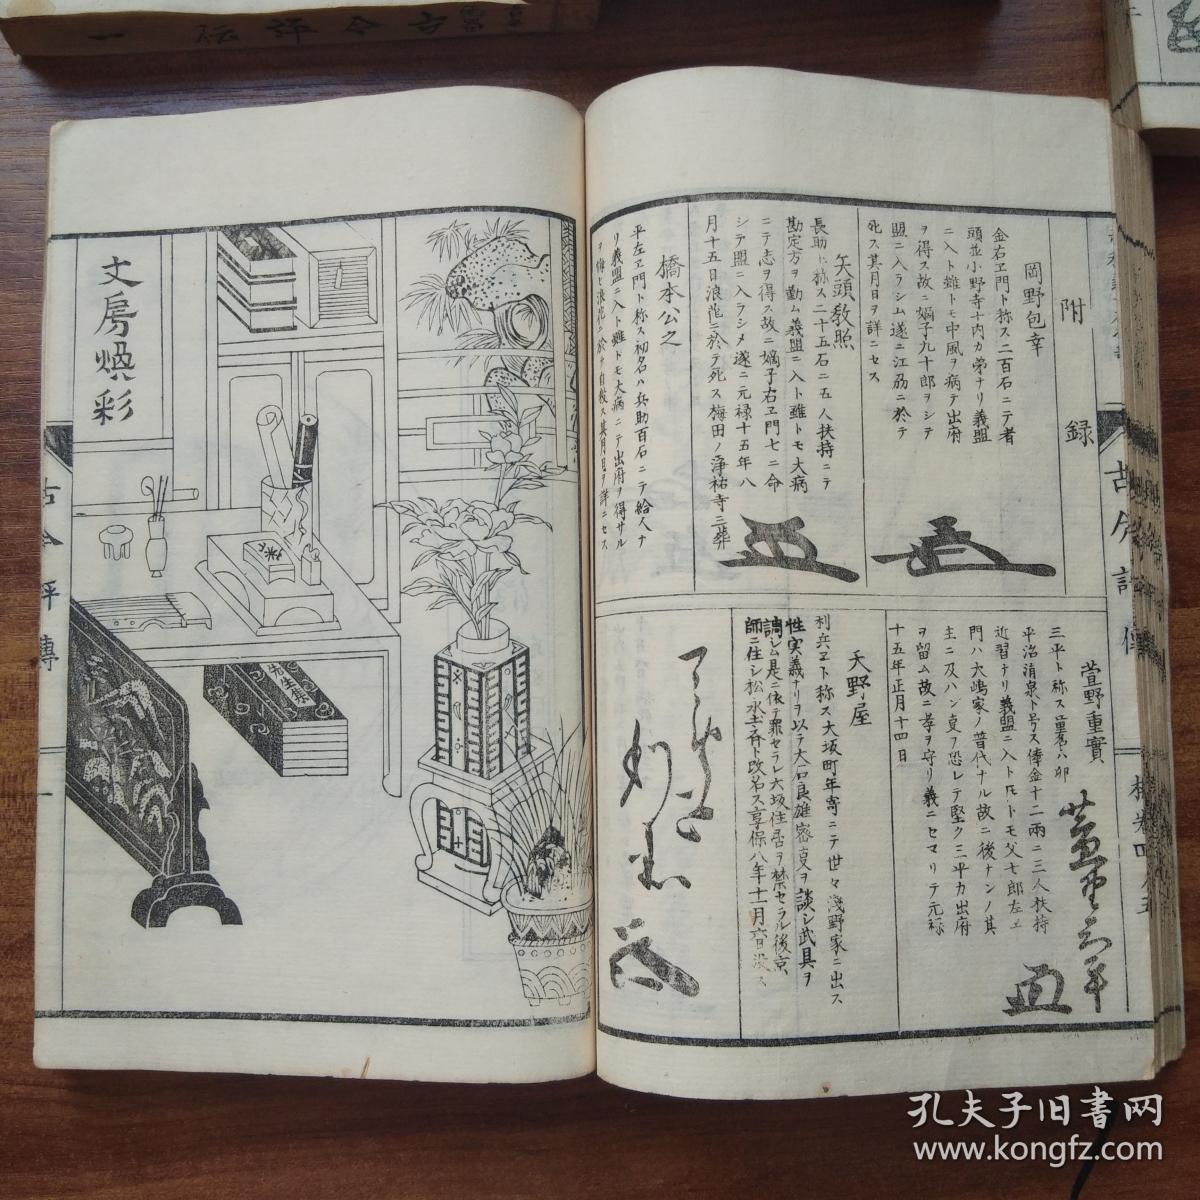 附録
岡野包幸
金右ヱ門ト称ス二百石ニテ者
頭並小野寺十内カ弟ナリ義盟
ニ入ト雖トモ中風ヲ病テ出府
ヲ得ス故ニ嫡子九十郎ヲシテ
盟ニ入ラシム遂ニ江刕ニ於テ
死ス其月日ヲ詳ニセス
矢頭教照
長助ト称ス二十五石ニ五人扶持ニテ
勘定方ヲ勤ム義盟ニ入ト雖トモ大病
ニテ志ヲ得ス故ニ嫡子右ヱ門七ニ命
シテ盟ニ入ラシメ遂ニ元禄十五年八
月十五日浪花ニ於テ死ス梅田ノ浄祐寺ニ葬
橋本公之
平左ヱ門ト称ス初名ハ兵助百石ニテ給人ナ
リ義盟ニ入ト雖トモ大病ニテ出府ヲ得サル
ヲ悔セ浪花ニ於テ自殺ス其月日ヲ詳ニセス
萱野重實
三平ト称ス
平治涓泉ト号ス俸金十二兩ニ三人扶持
近習ナリ義盟ニ入トモ父七郎左ヱ
門ハ大嶋家ノ普代ナル故ニ後ナンノ其
主ニ及ハン㕝ヲ恐レテ堅ク三平カ出府
ヲ留ム故ニ孝ヲ守リ義ニセマリテ元禄
十五年正月十四日
天野屋
利兵ヱト称ス大坂町年寄ニテ世々浅野家ニ出ス
性実義ナリヲ以テ大石良雄密㕝ヲ談シ武具ヲ
調シム是ニ依テ罪セラレ大坂住居ヲ禁セラル後京
師ニ住シ松永土斉ト改名ス享保八年十二月六日没ス
古今評傳
文房煥彩
古今評傳
一
古今評伝 一
孔夫子旧书网
www.kongfz.com